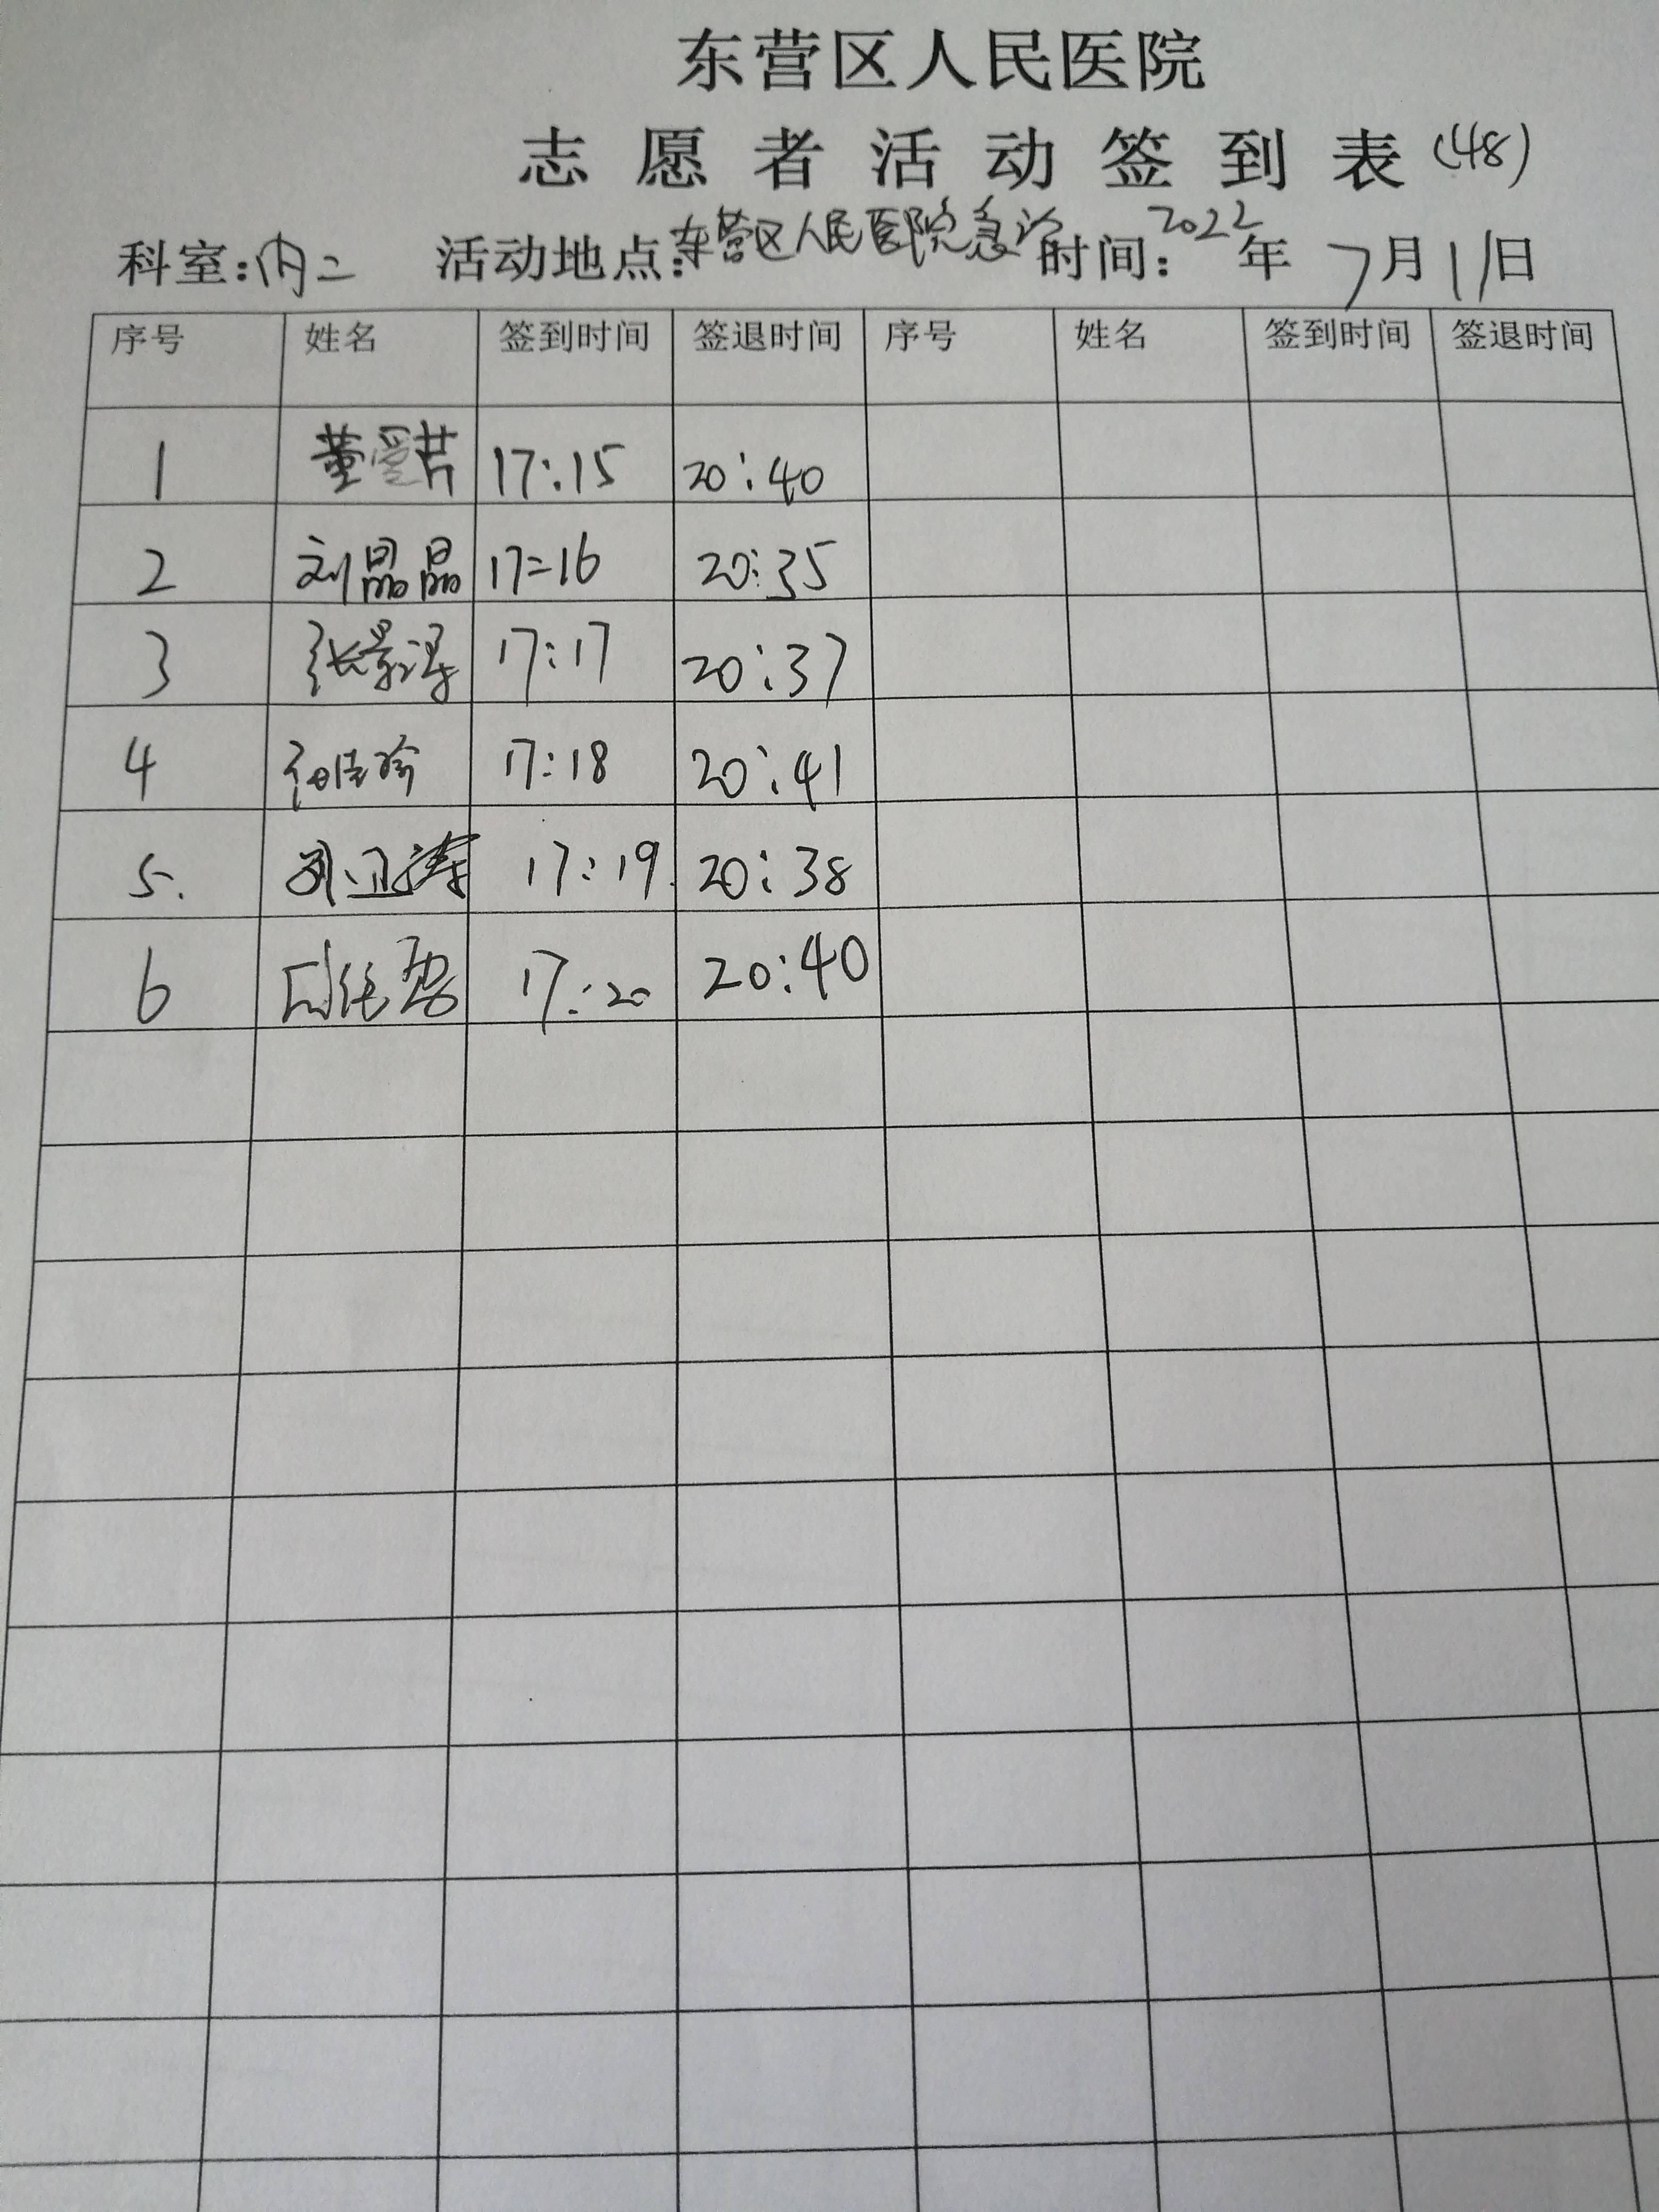 东营区人民医院
志愿者活动签到表(48)
科室:内二 活动地点:东营区人民医院急诊 时间:2022年7月11日
序号 姓名 签到时间 签退时间 序号 姓名 签到时间 签退时间
1 董爱芹 17:15 20:40
2 刘晶晶 17:16 20:35
3 张景 17:17 20:37
4 17:18 20:41
5. 17:19 20:38
6 17:20 20:40